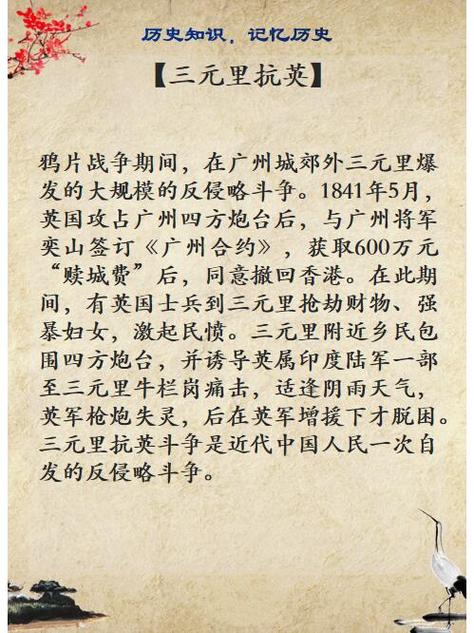 历史知识，记忆历史
【三元里抗英】
鸦片战争期间，在广州城郊外三元里爆
发的大规模的反侵略斗争。1841年5月，
英国攻占广州四方炮台后，与广州将军
奕山签订《广州合约》，获取600万元
“赎城费”后，同意撤回香港。在此期
间，有英国士兵到三元里抢劫财物、强
暴妇女，激起民愤。三元里附近乡民包
围四方炮台，并诱导英属印度陆军一部
至三元里牛栏岗痛击，适逢阴雨天气，
英军枪炮失灵，后在英军增援下才脱困。
三元里抗英斗争是近代中国人民一次自
发的反侵略斗争。